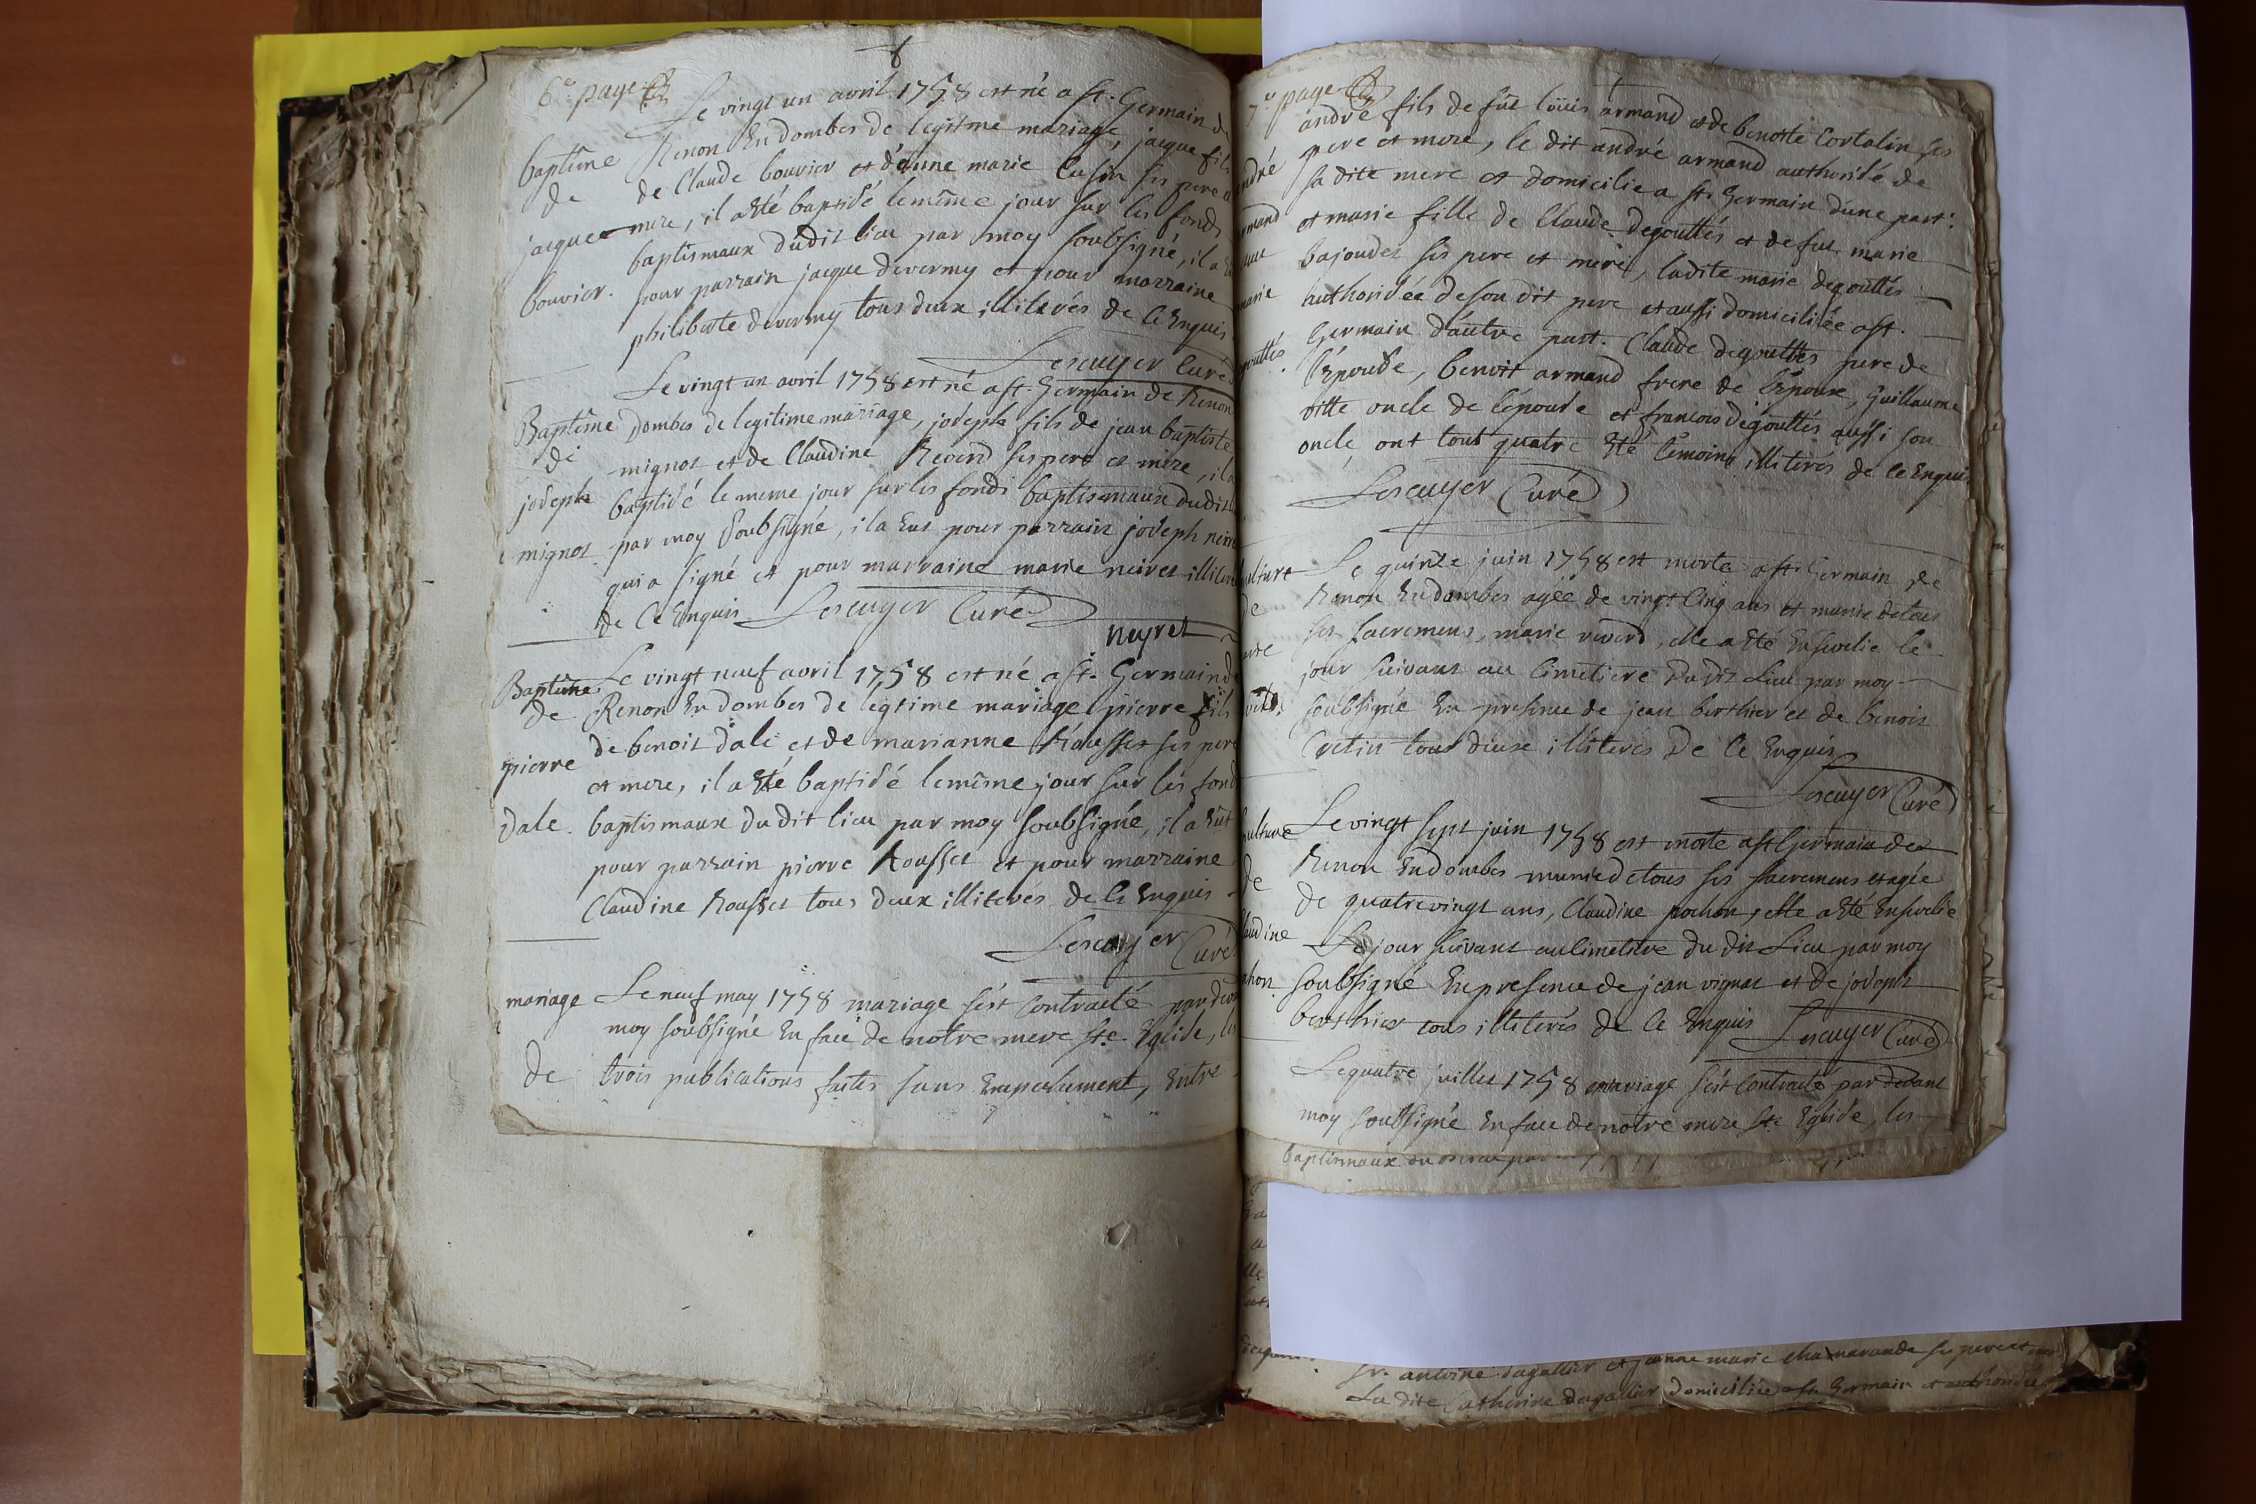 8
6e page
Le vingt un avril 1758 est né a st. Germain de
baptême Renon En dombes de legitme mariage, jacque fils
de de Claude bouvier et d'anne marie Cusin ses pere et
jacque mere, il a Eté baptisé le même jour sur les fonds
baptismaux dudit lieu par moy soubsigné, il a
bouvier. pour parrain jacque devermy et pour marraine
philiberte devermy tous deux illiterés de ce Enquis
Lescuyer Curé
Le vingt un avril 1758 est né a st. Germain de Renon
Baptême Dombes de legitime mariage, joseph fils de jean baptiste
de mignot et de Claudine Revord ses pere et mere, il a
joseph baptisé le meme jour sur les fonds baptismaux dudit
mignot par moy soubsigné, il a Eut pour parrain joseph
qui a signé et pour marraine marie neiret
de Ce Enquis Lescuyer Curé
neyret
Baptême Le vingt neuf avril 1758 est né a st. Germain de
de Renon En dombes de legtime mariage pierre fils
pierre de benoit dale et de marianne Rousset ses pere
et mere, il a Eté baptisé le même jour sur les fonds
Dale. baptismaux du dit lieu par moy soubsigné, il a Eut
pour parrain pierre Rousset et pour marraine
Claudine Rousset tous deux illiterés de ce Enquis
Lescuyer Curé
mariage Le neuf may 1758 mariage s'est Contracté par devant
moy soubsigné En face de notre mere ste. Eglise, les
de trois publications faites sans Empechement, Entre
7e page
andré fils de fût loüis armand et de benoite Cortalin ses
pere et mere, le dit andré armand authorisé de
sa dite mere et domicilié a st. Germain d'une part.
et marie fille de Claude degouttés et de fut marie
bajoudet ses pere et mere, ladite marie degouttés
authorisée de son dit pere et aussi domiciliée a st.
Germain d'autre part. Claude degouttes pere de
l'Epouse, benoit armand frere de l'Epoux, Guillaume
ville oncle de l'épouse et francois degouttés aussi son
oncle, ont tout quatre Eté témoins illiterés de ce Enquis
Lescuyer Curé
Le quinze juin 1758 est morte a st. Germain de
Renon En dombes agée de vingt Cinq ans et munie de tous
de ses sacremens, marie revord, elle a Eté Ensevelie le
jour suivant au Cimetiere du dit Lieu par moy
soubsigné En presence de jean berthier et de benoit
Cretin tous deux illiterés De Ce Enquis
Lescuyer Curé
Le vingt sept juin 1758 est morte a st Germain de
Renon En Dombes munie de tous ses sacremens et agée
de de quatre vingt ans, Claudine pochon, elle a Eté Ensevelie
Le jour suivant au Cimetiere du dit Lieu par moy
soubsigné En presence de jean vignat et de joseph
berthier tous illiterés de Ce Enquis Lescuyer Curé
Le quatre juillet 1758 mariage s'est Contracté par devant
moy soubsigné En face de notre mere ste Eglise, les
baptismaux du
sr. antoine dagallier et jeanne marie chamarande ses pere et
La dite Catherine dagallier domiciliée a st. Germain et authorisée